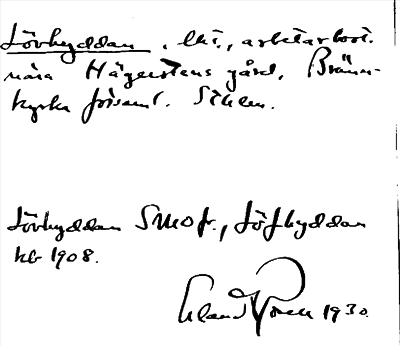 Lövhyddan, lht., arbetarbost.
nära Hägerstens gård, Bränn-
kyrka församl. Sthlm.
Lövhyddan SMOfr., Löfhyddan
kb 1908.
1930.